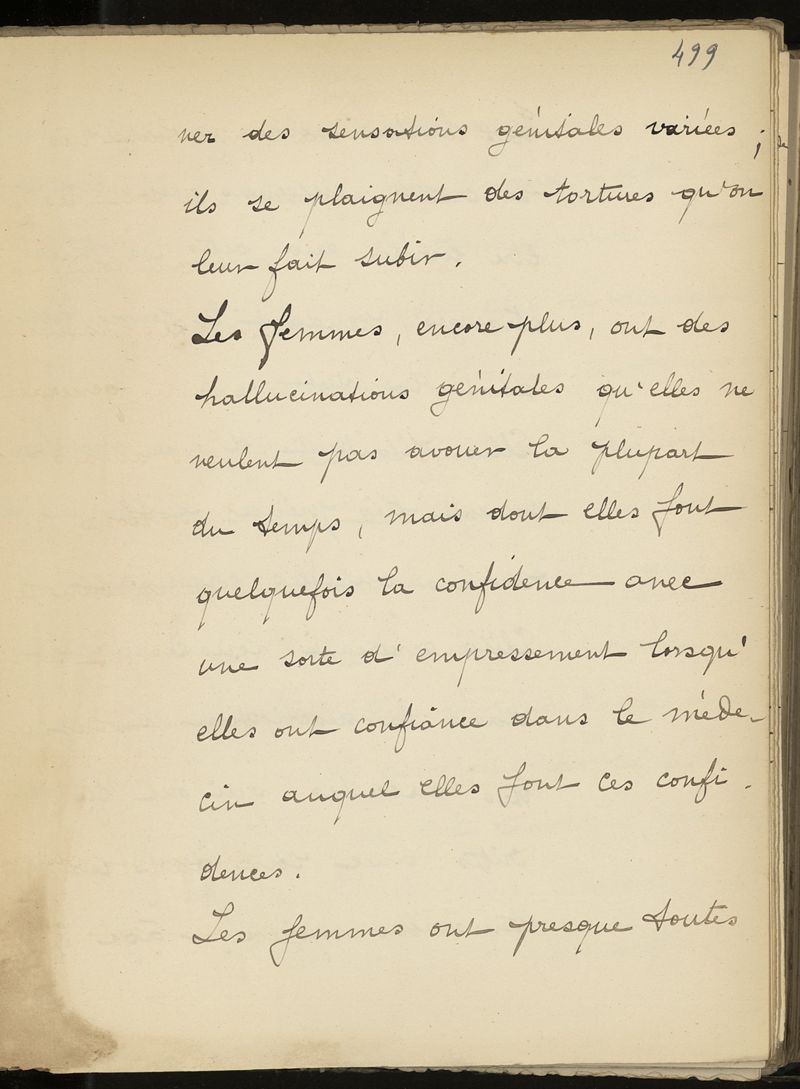 499
ner des sensations génitales variées ;
ils se plaignent des tortures qu'on
leur fait subir.
Les femmes, encore plus, ont des
hallucinations génitales qu'elles ne
veulent pas avouer la plupart
du temps, mais dont elles font
quelquefois la confidence avec
une sorte d'empressement lorsqu'
elles ont confiance dans le méde-
cin auquel elles font ces confi-
dences.
Les femmes ont presque toutes